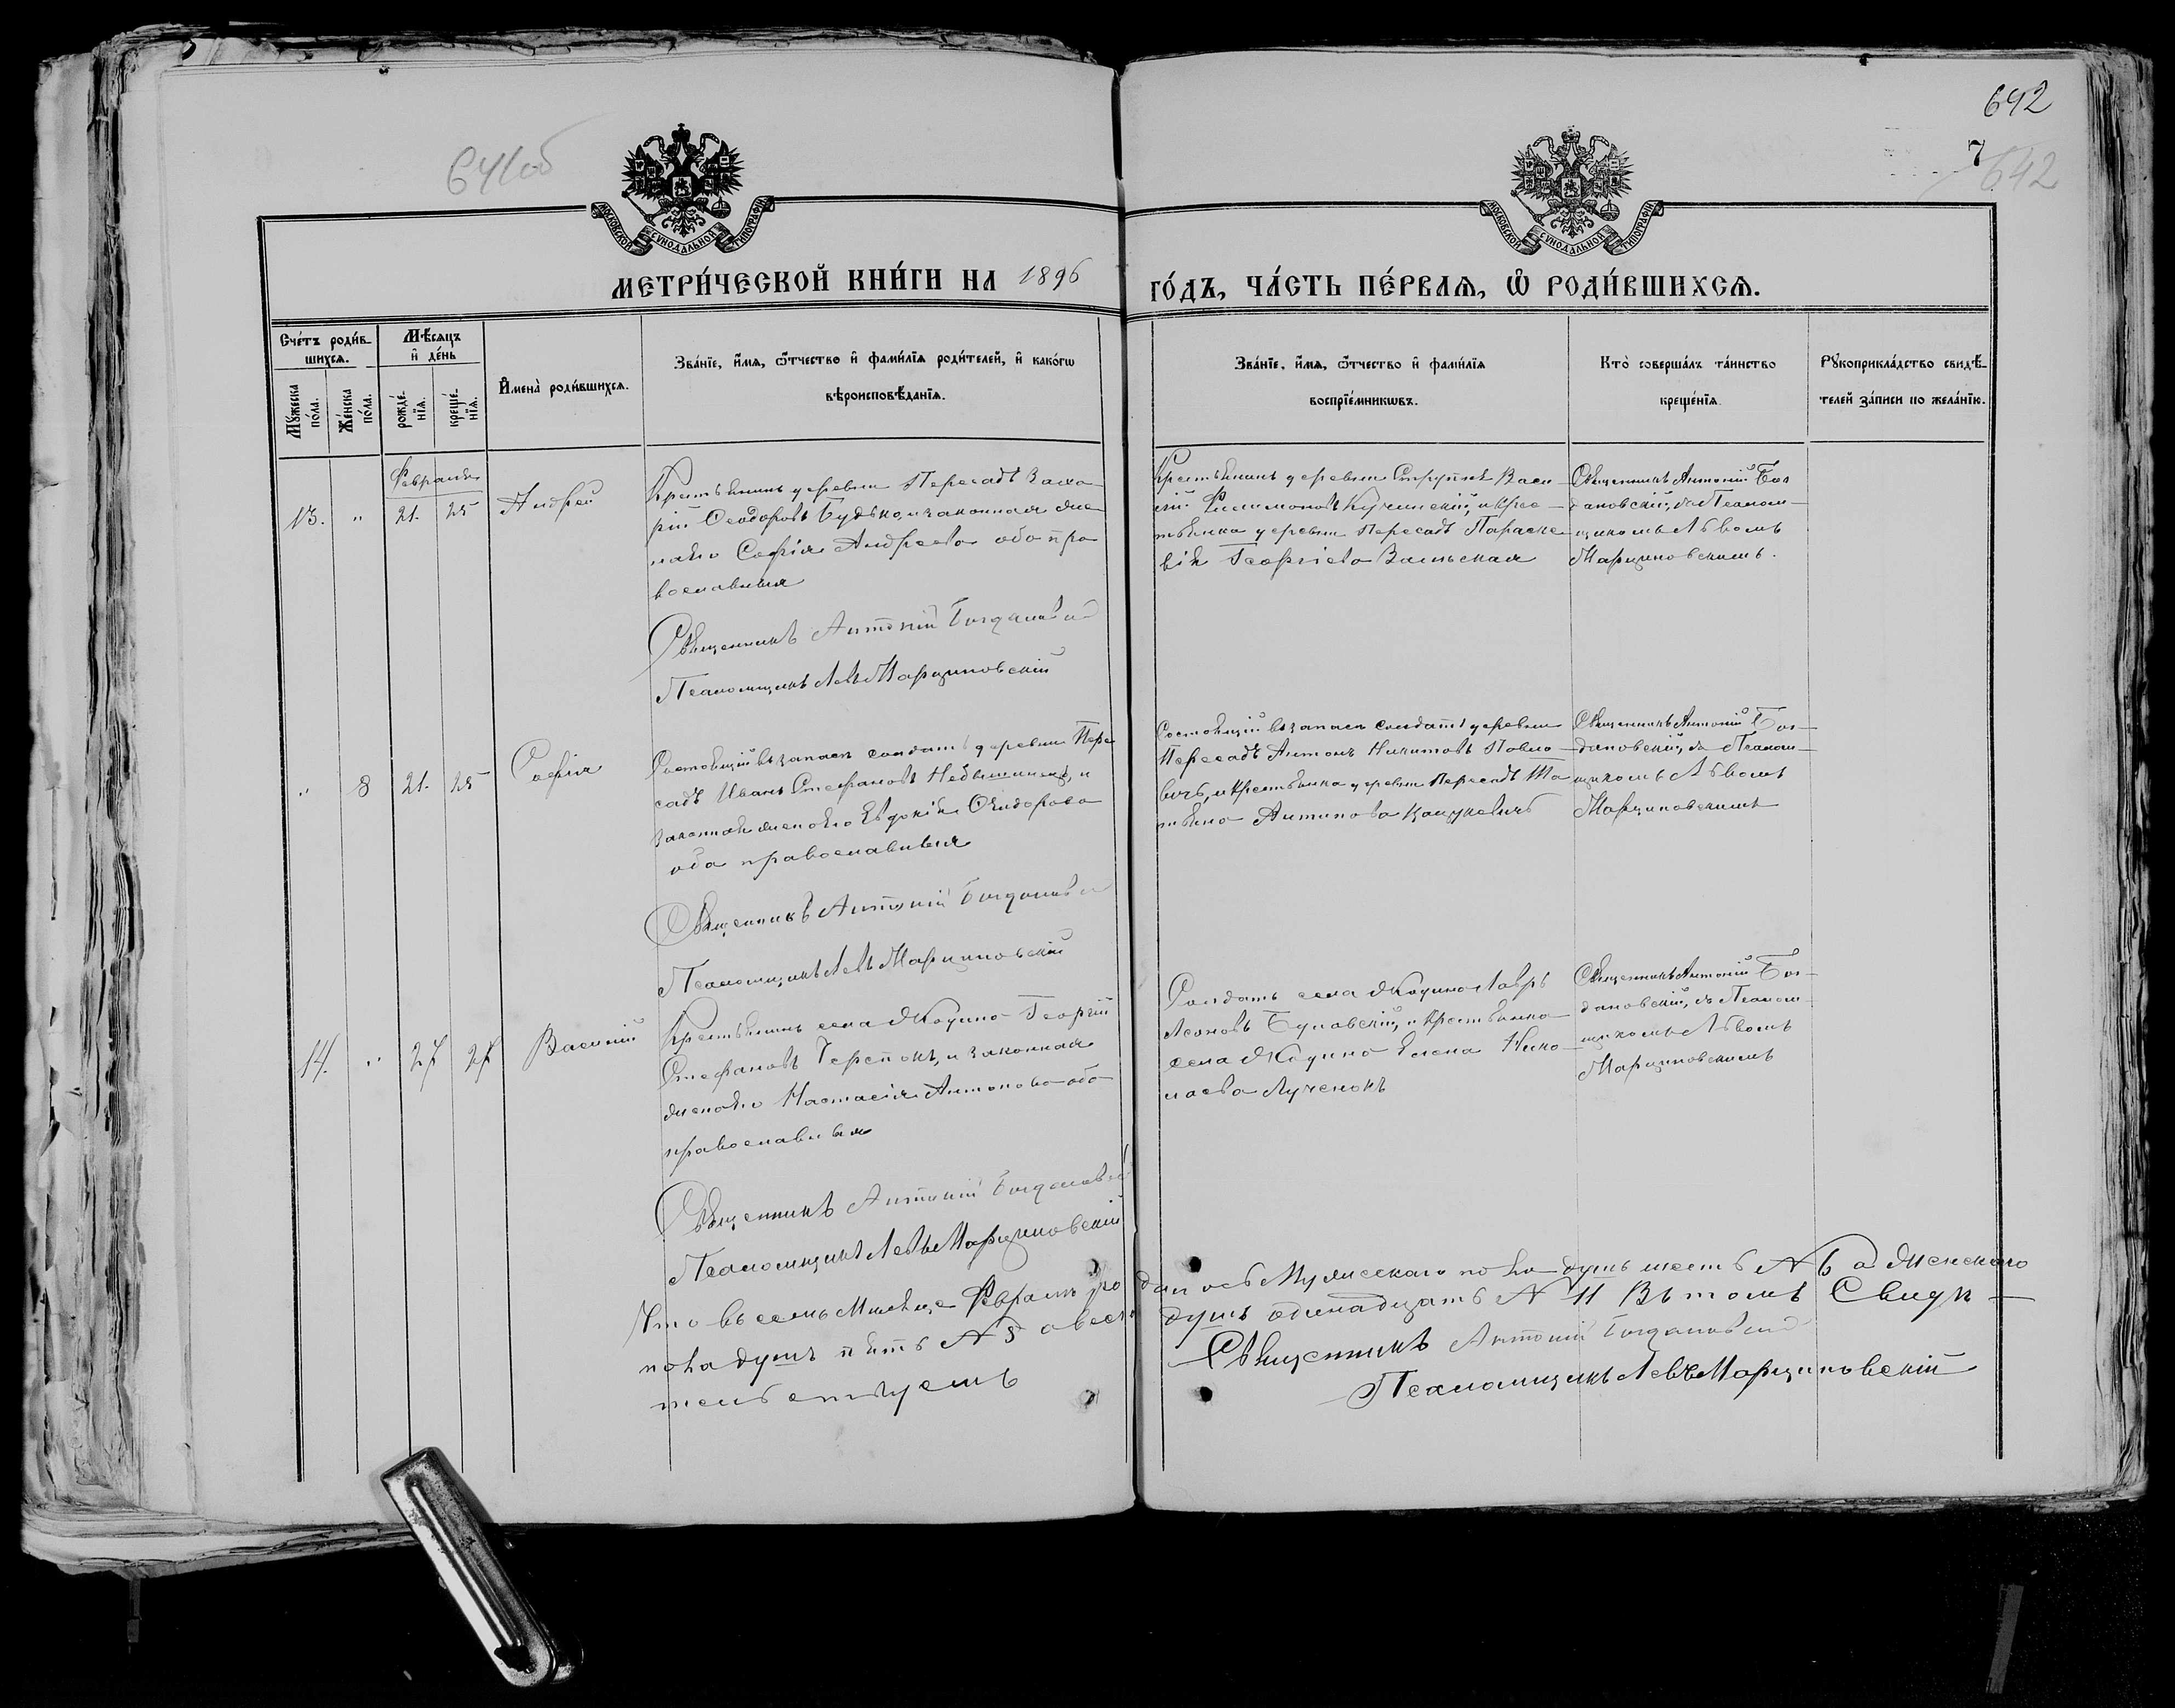 641об
692
7
642
МОСКОВСКОЙ СУНОДАЛЬНОЙ ТИПОГРАФІИ
МОСКОВСКОЙ СУНОДАЛЬНОЙ ТИПОГРАФІИ
МЕТРИ́ЧЕСКОЙ КНИ́ГИ НА 1896 ГО́ДЪ, ЧА́СТЬ ПЕ́РВАЯ, Ѡ РОДИ́ВШИХСЯ.
Сче́тъ роди́в-
шихся.
Мꙋжеска по́ла.
Же́нска по́ла.
Мѣ́сяцъ
и҆ де́нь
рожде́-
нїя.
креще́-
нїя.
И҆мена̀ роди́вшихся.
Зва́нїе, и҆́мя, ѻ҆́тчество и҆ фами́лїя роди́телей, и҆ како́гѡ
вѣроисповѣ́данїя.
Зва́нїе, и҆́мя, ѻ҆́тчество и҆ фами́лїя
воспрїе́мникѡвъ.
Кто̀ соверша́лъ та́инство
креще́нїя.
Рꙋкоприкла́дство свидѣ́-
телей за́писи по жела́нїю.
Февраля
13. " 21. 25 Андрей
Крестьянинъ деревни Пересадъ Заха-
рій Ѳеодоровъ Будько, и законная же-
на его Софія Андреева оба пра
вославныя
Священникъ Антоній Богдановскій
Псаломщикъ Левъ Марциновскій
Крестьянинъ деревни Васи-
лій Филимоновъ Кучинскій, и крес-
тьянка деревни Пересадъ Параске-
вія Георгіева
Священникъ Антоній Бог
дановскій, съ Псалом-
щикомъ Львомъ
Марциновскимъ.
" 8 21. 25 Софія
Состоящій въ запасѣ солдатъ деревни Пере
садъ Иванъ Стефановъ и
законная жена его Евдокія Ѳеодорова
оба православныя
Священникъ Антоній Богдановскій
Псаломщикъ Левъ Марциновскій
Состоящій въ запасѣ солдатъ деревни
Пересадъ Антонъ Никитовъ Павло-
вичъ, и крестьянка деревни Пересадъ Та
тьяна Антипова
Священникъ Антоній Бог-
дановскій, съ Псалом-
щикомъ Львомъ
Марциновскимъ
14. " 27 27 Василій
Крестьянинъ села Жодино Георгій
Стефановъ Черепокъ, и законная
жена его Настасія Антонова оба
православныя
Священникъ Антоній Богдановскій
Псаломщикъ Левъ Марциновскій
Солдатъ села Жодино Лавръ
Леоновъ Буловскій, и крестьянка
села Жодино Елена Нико-
лаева Лученокъ
Священникъ Антоній Бог-
дановскій, съ Псалом-
щикомъ Львомъ
Марциновскимъ
Что въ семъ Мѣсяцѣ Февралѣ родилось Мужескаго пола душъ шесть № 6 а Женскаго
пола душъ пять № 5 а всего душъ одинадцать № 11 Въ томъ Свидѣ-
тельствуемъ
Священникъ Антоній Богдановскій
Псаломщикъ Левъ Марциновскій